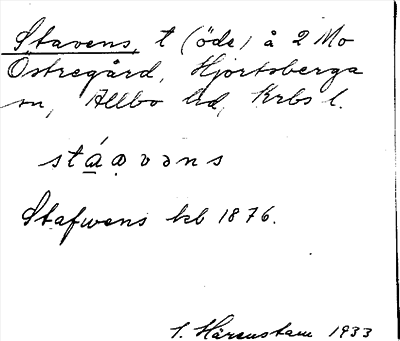 Stavens, t (öde) å 2 Mo
Östregård, Hjortsberga
sn, Allbo hd, Krbs l.
stá̲ạvəns
Stafwens kb 1876.
I. Härenstam 1933